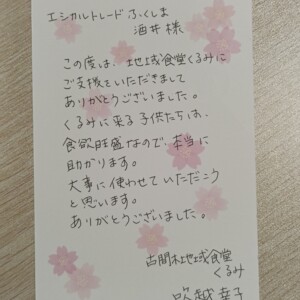 エシカルトレード ふくしま
酒井 様
この度は、地域食堂くるみに
ご支援をいただきまして
ありがとうございました。
くるみに来る子供たちは、
食欲旺盛なので、本当に
助かります。
大事に使わせていただこう
と思います。
ありがとうございました。
古間木地域食堂
くるみ
吹越 幸子